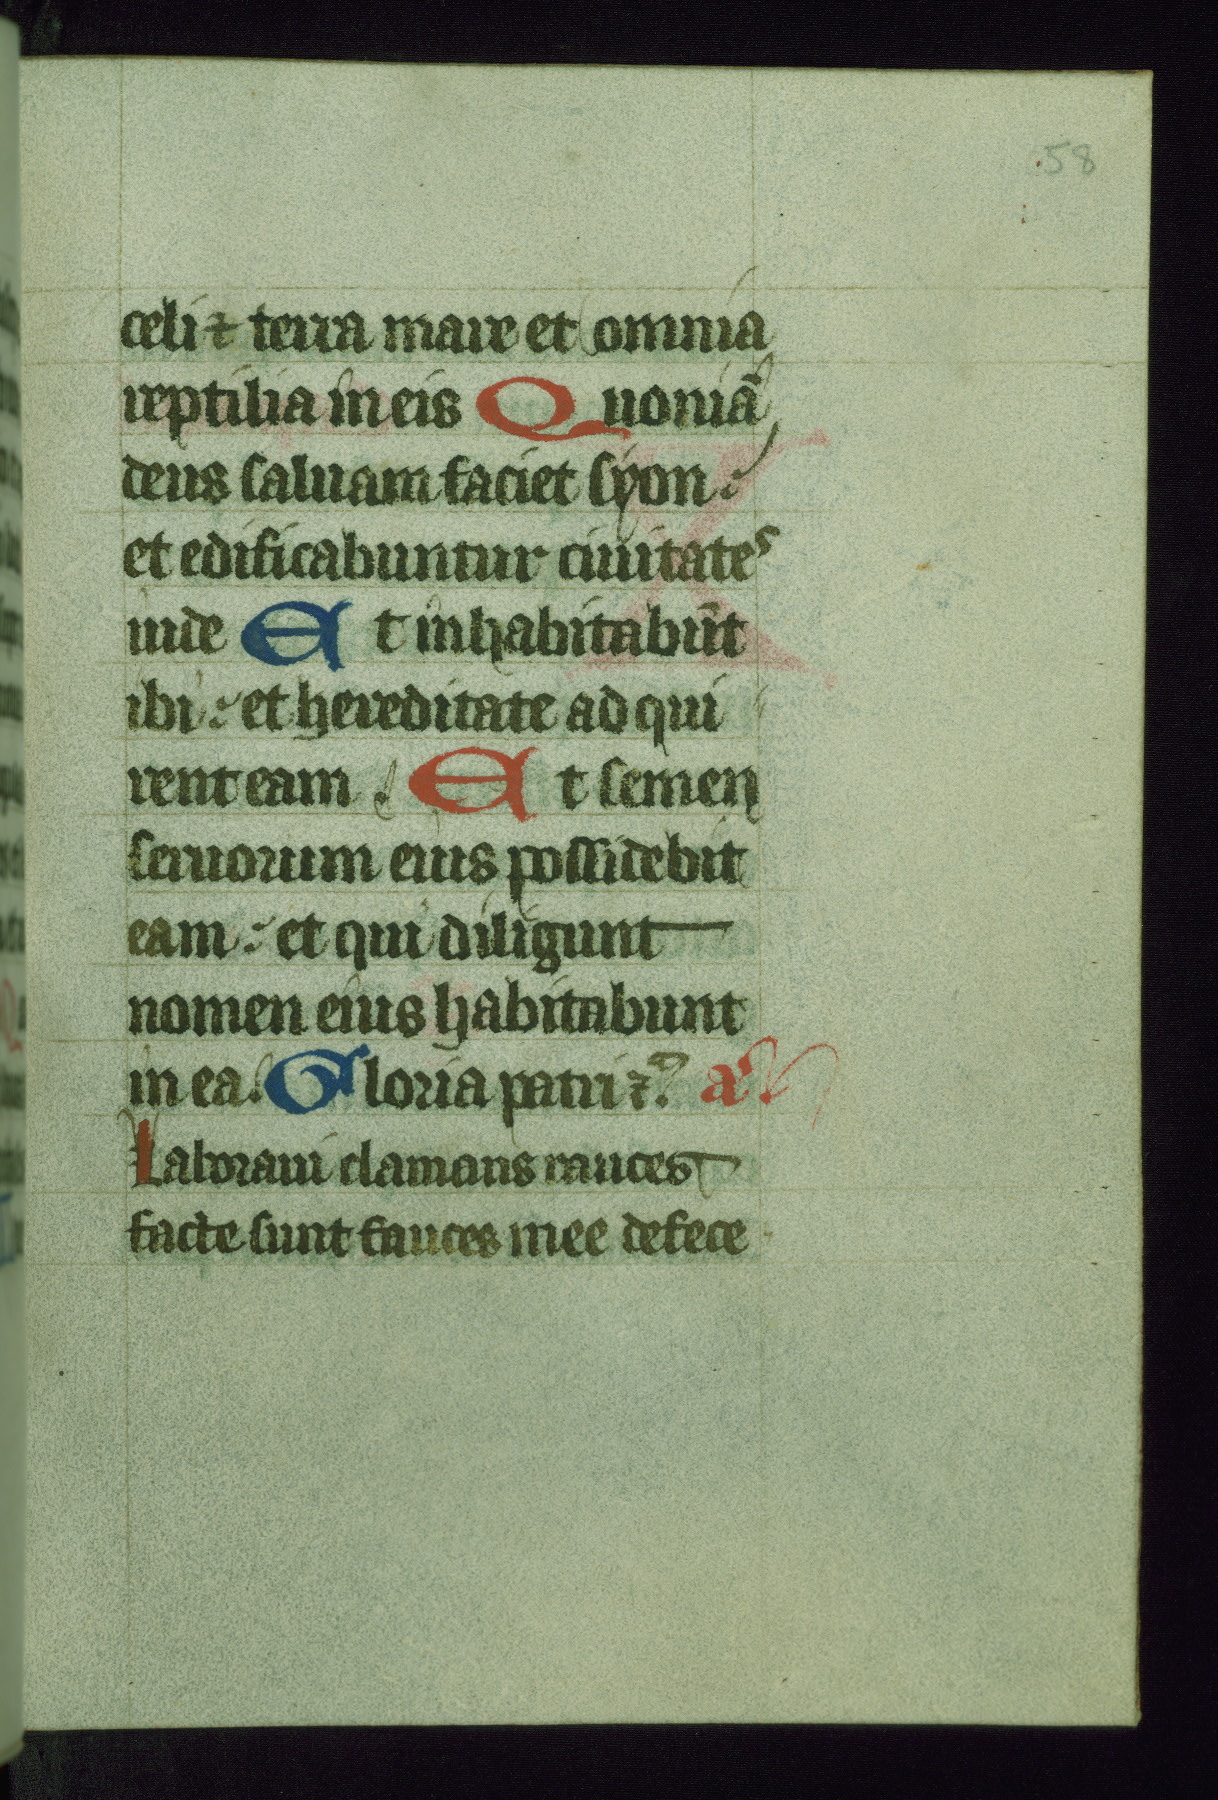 58
celi ⁊ terra mare et omnia
reptilia in eis Quoniã
deus saluam faciet syon :
et edificabuntur ciuitates
iude Et inhabitabūt
ibi : et hereditate adqui
rent eam . Et semen
seruorum eius possidebit
eam : et qui diligunt
nomen eius habitabunt
in ea . Gloria patri ⁊c̄ . añ
Laboraui clamans rauces
facte sunt fauces mee defece